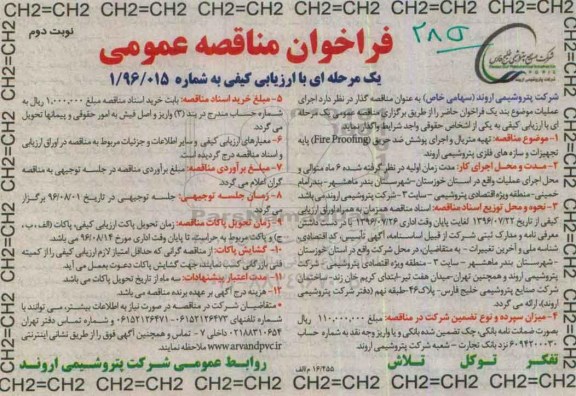 CH2=CH2 CH2=CH2 CH2=CH2 CH2=CH2 CH2=CH2 CH2=CH2 CH2=CH2
نوبت دوم
فراخوان مناقصه عمومی
یک مرحله ای با ارزیابی کیفی به شماره ۱/۹۶/۰۱۵
شرکت پتروشیمی اروند (سهامی خاص) به عنوان مناقصه گذار در نظر دارد اجرای
عملیات موضوع بند یک فراخوان حاضر را از طریق برگزاری مناقصه عمومی یک مرحله
ای با ارزیابی کیفی به یکی از اشخاص حقوقی واجد شرایط واگذار نماید.
۱- موضوع مناقصه: تهیه متریال و اجرای پوشش ضد حریق (Fire Proofing) پایه
تجهیزات و سازه های فلزی پتروشیمی اروند
۲- مدت و محل اجرای کار: مدت زمان اولیه در نظر گرفته شده ۶ ماه متوالی و
محل اجرای عملیات واقع در استان خوزستان-شهرستان بندر ماهشهر-بندر امام
خمینی-منطقه ویژه اقتصادی پتروشیمی-سایت ۳ - شرکت پتروشیمی اروند می باشد.
۳- نحوه و محل توزیع اسناد مناقصه: اسناد مناقصه منضم به اوراق ارزیابی
کیفی از تاریخ ۱۳۹۶/۰۷/۲۲ لغایت پایان وقت اداری ۱۳۹۶/۰۷/۲۶ با در دست داشتن
معرفی نامه و مدارک ثبتی شرکت از قبیل اساسنامه، آگهی تأسیس، کد اقتصادی،
شناسه ملی و آخرین تغییرات - به متقاضیان، در محل شرکت واقع در استان خوزستان
-شهرستان بندر ماهشهر - سایت ۳ - منطقه ویژه اقتصادی پتروشیمی - شرکت
پتروشیمی اروند و همچنین تهران-میدان هفت تیر-ابتدای کریم خان زند- ساختمان
شرکت صنایع پتروشیمی خلیج فارس- پلاک ۴۶- طبقه نهم (دفتر شرکت پتروشیمی
اروند)، ارائه می گردد.
۴- میزان سپرده و نوع تضمین شرکت در مناقصه: مبلغ ۱۱۰,۰۰۰,۰۰۰ ریال
بصورت ضمانت نامه بانکی، چک تضمین شده بانکی و یا واریز وجه نقد به شماره حساب
۶۰۹۴۲۰۰۰۳۰ نزد بانک تجارت - شعبه شرکت پتروشیمی اروند
۵- مبلغ خرید اسناد مناقصه: بابت خرید اسناد مناقصه مبلغ ۱,۰۰۰,۰۰۰ ریال به
شماره حساب مندرج در بند (۴) واریز و اصل فیش به امور حقوقی و پیمانها تحویل
می گردد.
۶- معیارهای ارزیابی کیفی و سایر اطلاعات و جزئیات مربوط به مناقصه در اوراق ارزیابی
و اسناد مناقصه درج گردیده است.
۷- مبلغ برآوردی مناقصه: مبلغ برآوردی مناقصه در جلسه توجیهی به مناقصه
گران اعلام می گردد.
۸- زمان جلسه توجیهی: جلسه توجیهی در تاریخ ۹۶/۰۸/۰۱ برگزار
می گردد.
۹- زمان تحویل پاکات مناقصه: زمان تحویل پاکت ارزیابی کیفی، پاکات (الف، ب،
ج) و پاکت مربوط به حراست، تا پایان وقت اداری مورخ ۹۶/۰۸/۱۴ می باشد.
۱۰- گشایش پاکات: از مناقصه گرانی که حداقل امتیاز لازم ارزیابی کیفی را از کمیته
فنی بازرگانی کسب نمایند، جهت گشایش پاکات دعوت بعمل می آید.
۱۱- مدت اعتبار پیشنهادات: سه ماه از تاریخ تحویل پاکات می باشد
۱۲- هزینه درج آگهی بر عهده برنده مناقصه می باشد.
متقاضیان شرکت در مناقصه، در صورت نیاز به اطلاعات بیشتر، می توانند با
شماره تلفنهای ۰۶۱۵۲۱۲۶۴۷۳-۰۶۱۵۲۱۲۶۴۷۱ و شماره تماس دفتر تهران
۰۲۱۸۸۳۱۰۶۵۴ داخلی ۷ - تماس و همچنین آگهی فوق را از طریق نشانی اینترنتی
www.arvandpvc.ir ملاحظه نمایند.
تفکر توکل تلاش
روابط عمومی شرکت پتروشیمی اروند
۱۶/۴۵۵ م الف
CH2=CH2 CH2=CH2 CH2=CH2 CH2=CH2 CH2=CH2 CH2=CH2 CH2=CH2